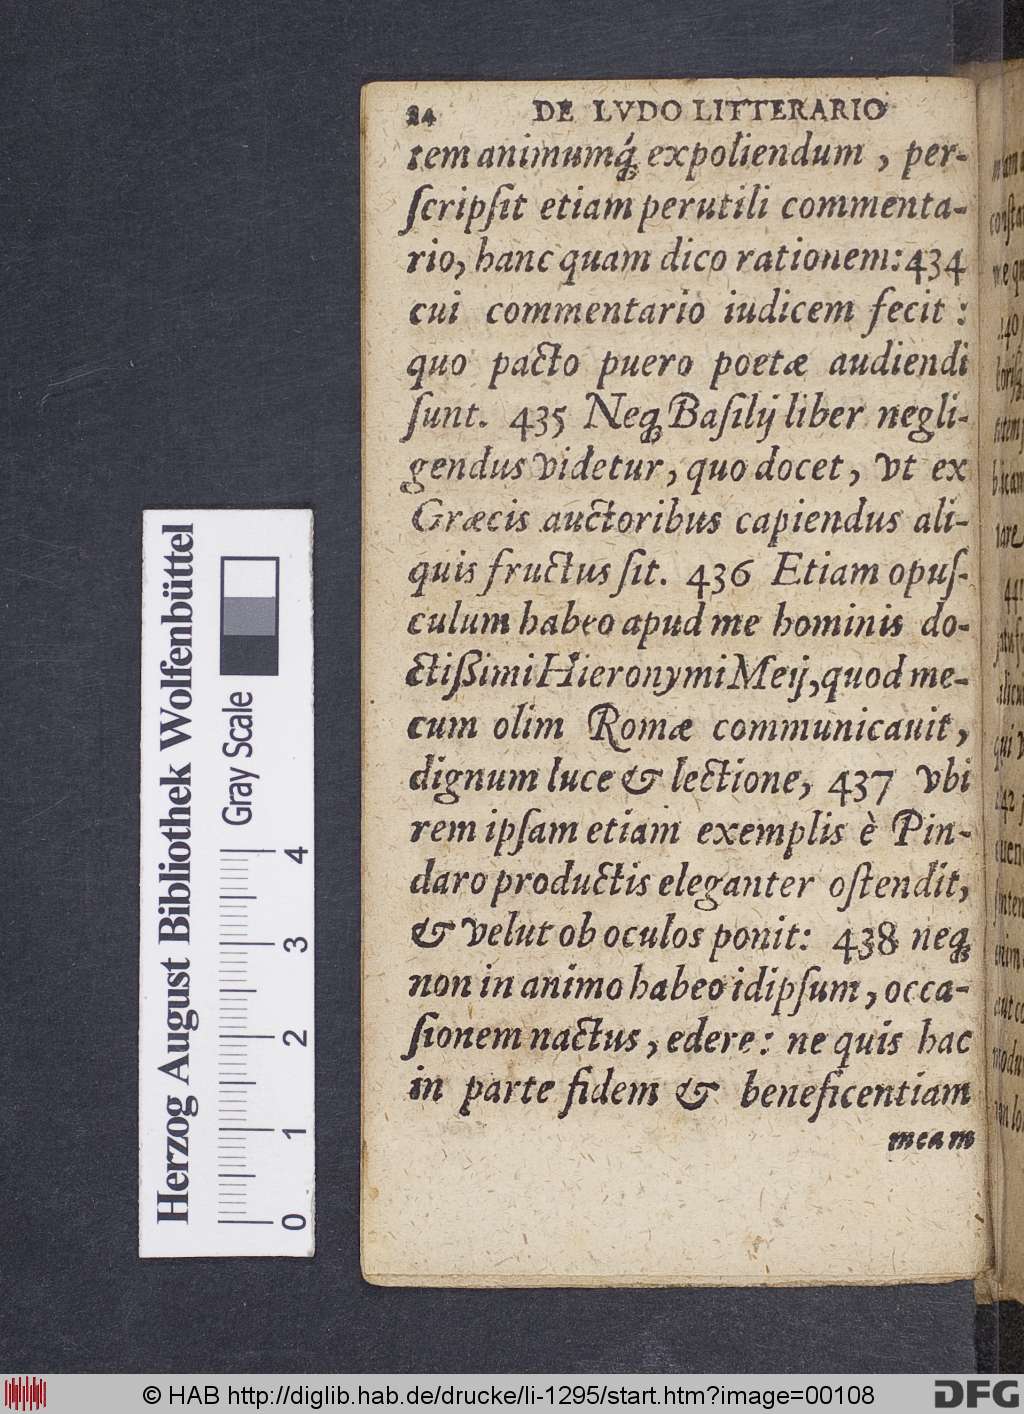 24 DE LVDO LITTERARIO
tem animumq́; expoliendum, per-
ſcripſit etiam perutili commenta-
rio, hanc quam dico rationem: 434
cui commentario iudicem fecit:
quo pacto puero poetæ audiendi
ſunt. 435 Neq; Baſilij liber negli-
gendus videtur, quo docet, vt ex
Græcis auctoribus capiendus ali-
quis fructus ſit. 436 Etiam opuſ-
culum habeo apud me hominis do-
ctißimi Hieronymi Meij, quod me-
cum olim Romæ communicauit,
dignum luce & lectione, 437 vbi
rem ipſam etiam exemplis è Pin-
daro productis eleganter oſtendit,
& velut ob oculos ponit: 438 neq;
non in animo habeo idipſum, occa-
ſionem nactus, edere: ne quis hac
in parte fidem & beneficentiam
meam
Herzog August Bibliothek Wolfenbüttel
Gray Scale
4
3
2
1
0
© HAB http://diglib.hab.de/drucke/li-1295/start.htm?image=00108
DFG